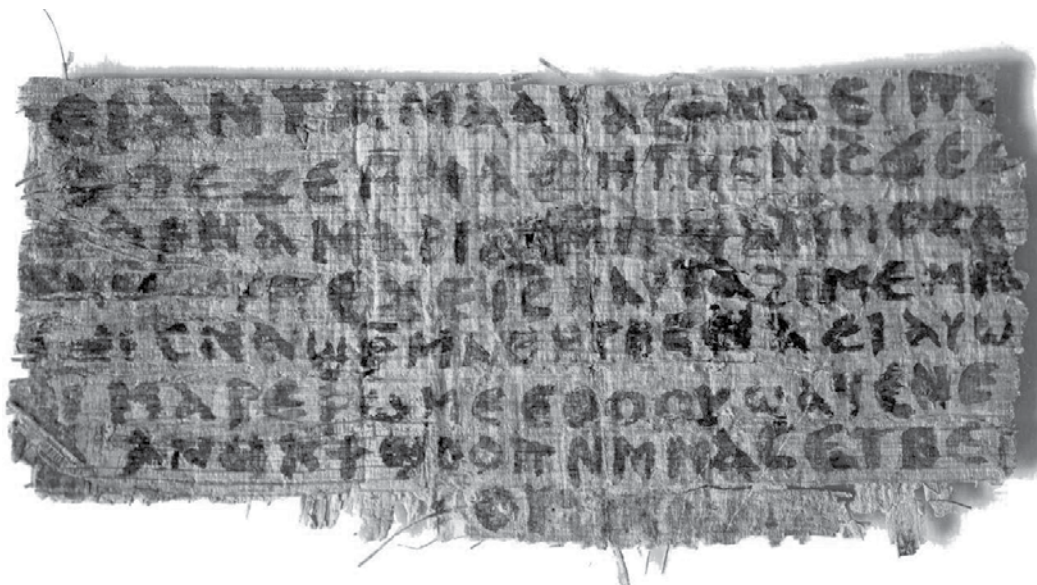 ⲉⲓⲁⲛⲧⲁⲙⲁⲁⲩⲁⲥϯⲛⲁⲉⲓⲡⲱ
ⲡⲉϫⲉⲙⲙⲁⲑⲏⲧⲏⲥⲛⲓ̅ⲥ̅ϫⲉⲥ
ⲁⲣⲛⲁⲙⲁⲣⲓⲁⲙⲙⲡϣⲁⲙⲙⲟⲥⲁ
ⲡⲉϫⲉⲓ̅ⲥ̅ⲛⲁⲩⲧⲁϩⲓⲙⲉⲙⲛ
ⲥⲛⲁϣⲣⲙⲁⲑⲏⲧⲏⲥⲛⲁⲉⲓⲁⲩⲱ
ⲙⲁⲣⲉⲣⲱⲙⲉⲉⲑⲟⲟⲩϣⲁϥⲉⲛⲉ
ⲁⲛⲟⲕϯϣⲟⲟⲡⲛⲙⲙⲁⲥⲉⲧⲃⲉ